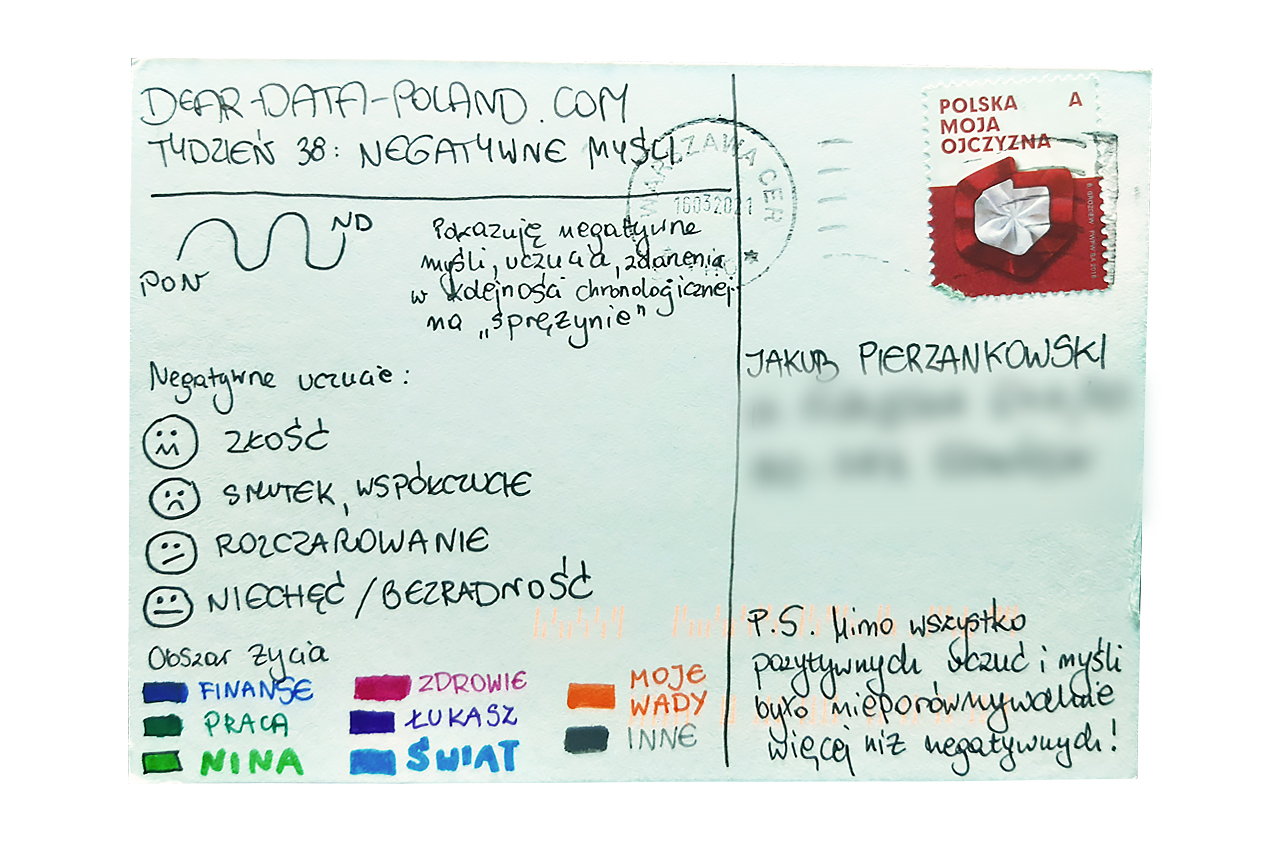 DEAR-DATA-POLAND.COM
TYDZIEŃ 38: NEGATYWNE MYŚLI
PON
ND
Pokazuję negatywne
myśli, uczucia, zdarzenia
w kolejności chronologicznej
na „sprężynie"
Negatywne uczucie:
ZŁOŚĆ
SMUTEK, WSPÓŁCZUCIE
ROZCZAROWANIE
NIECHĘĆ / BEZRADNOŚĆ
Obszar życia
FINANSE
PRACA
NINA
ZDROWIE
ŁUKASZ
ŚWIAT
MOJE
WADY
INNE
POLSKA A
MOJA
OJCZYZNA
WARSZAWA CER
16032021
JAKUB PIERZANKOWSKI
P.S. Mimo wszystko
pozytywnych uczuć i myśli
było nieporównywalnie
więcej niż negatywnych!